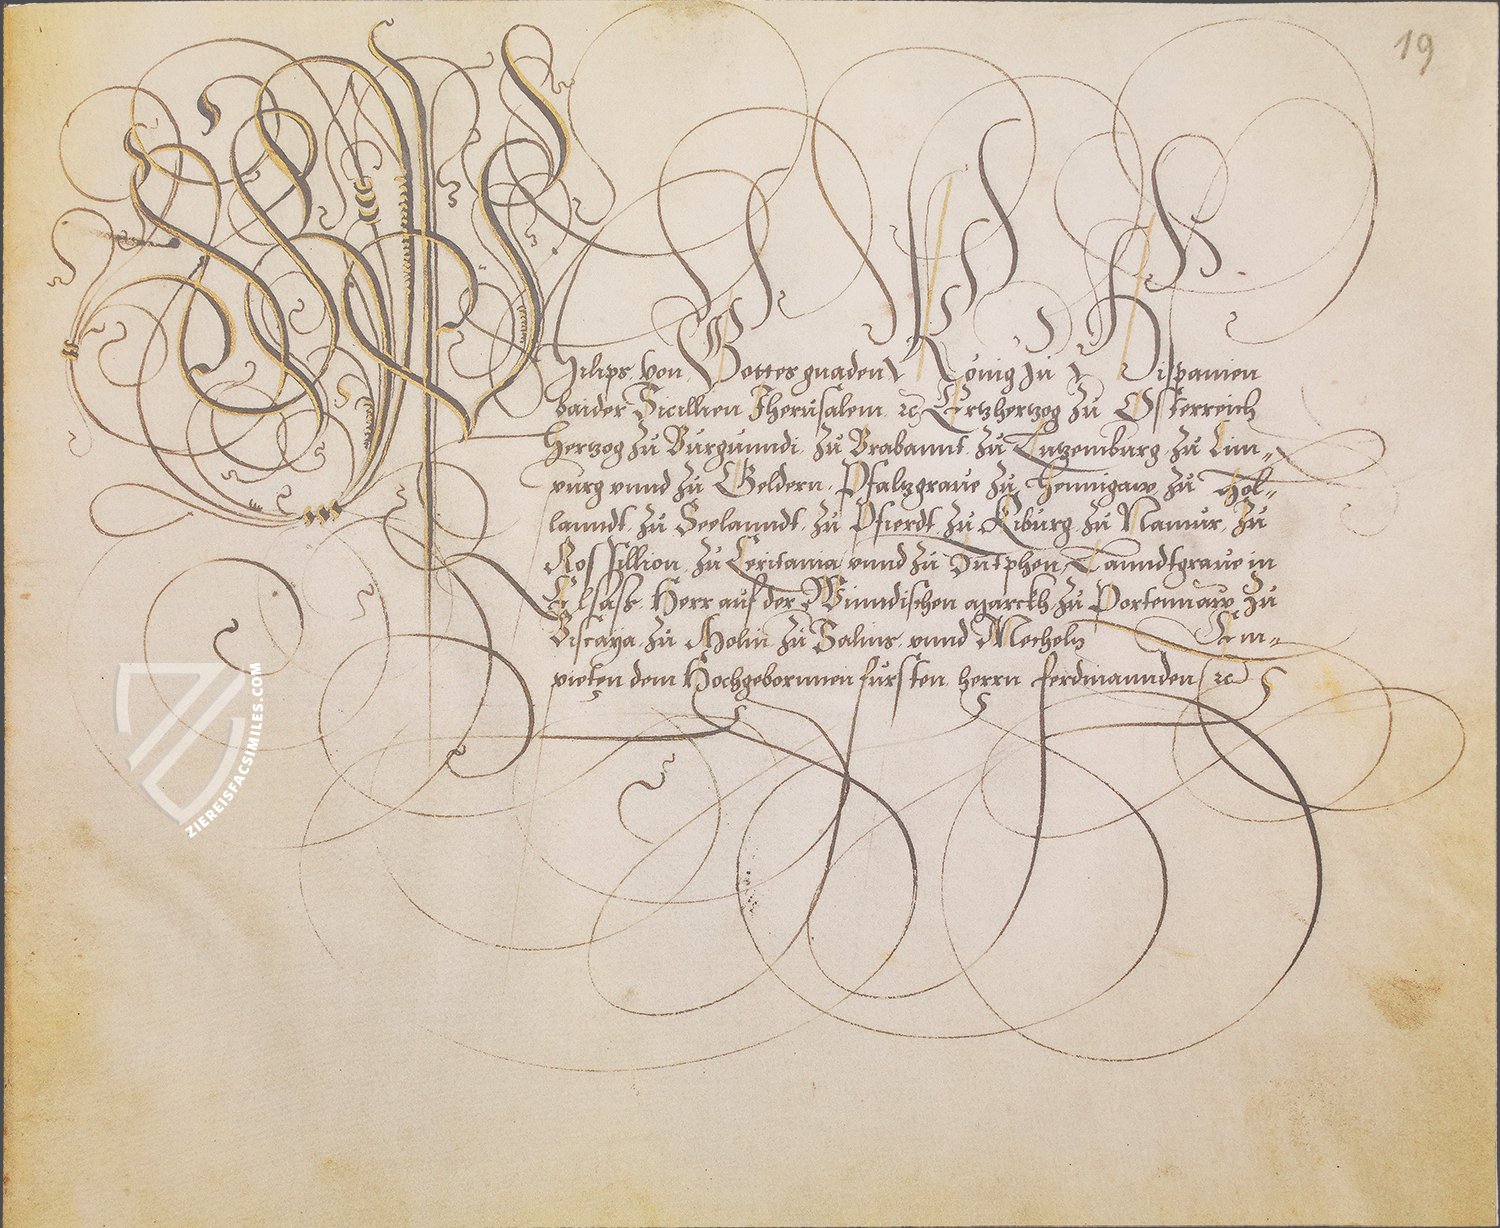 19
Philips von Gottes gnaden König zu Hispanien
baider Sicillien Jherusalem ꝛc Ertzhertzog zu Osterreich
Hertzog zu Burgunndi, zu Brabannt, zu Lutzemburg, zu Lim=
purg unnd zu Geldern, Pfaltzgraue zu Hennigaw zu Hol=
lanndt, zu Seelanndt, zu Pfierdt, zu Kiburg, zu Namur, zu
Rossillion, zu Ceritania unnd zu Zutphen Lanndtgraue in
Elsass, Herr auf der Winndischen Marckh, zu Portennaw, zu
Biscaya, zu Molin, zu Salins, unnd Mecheln Em=
pieten dem Hochgebornnen fürsten, herrn ferdinannden ꝛc
ZIEREISFACSIMILES.COM